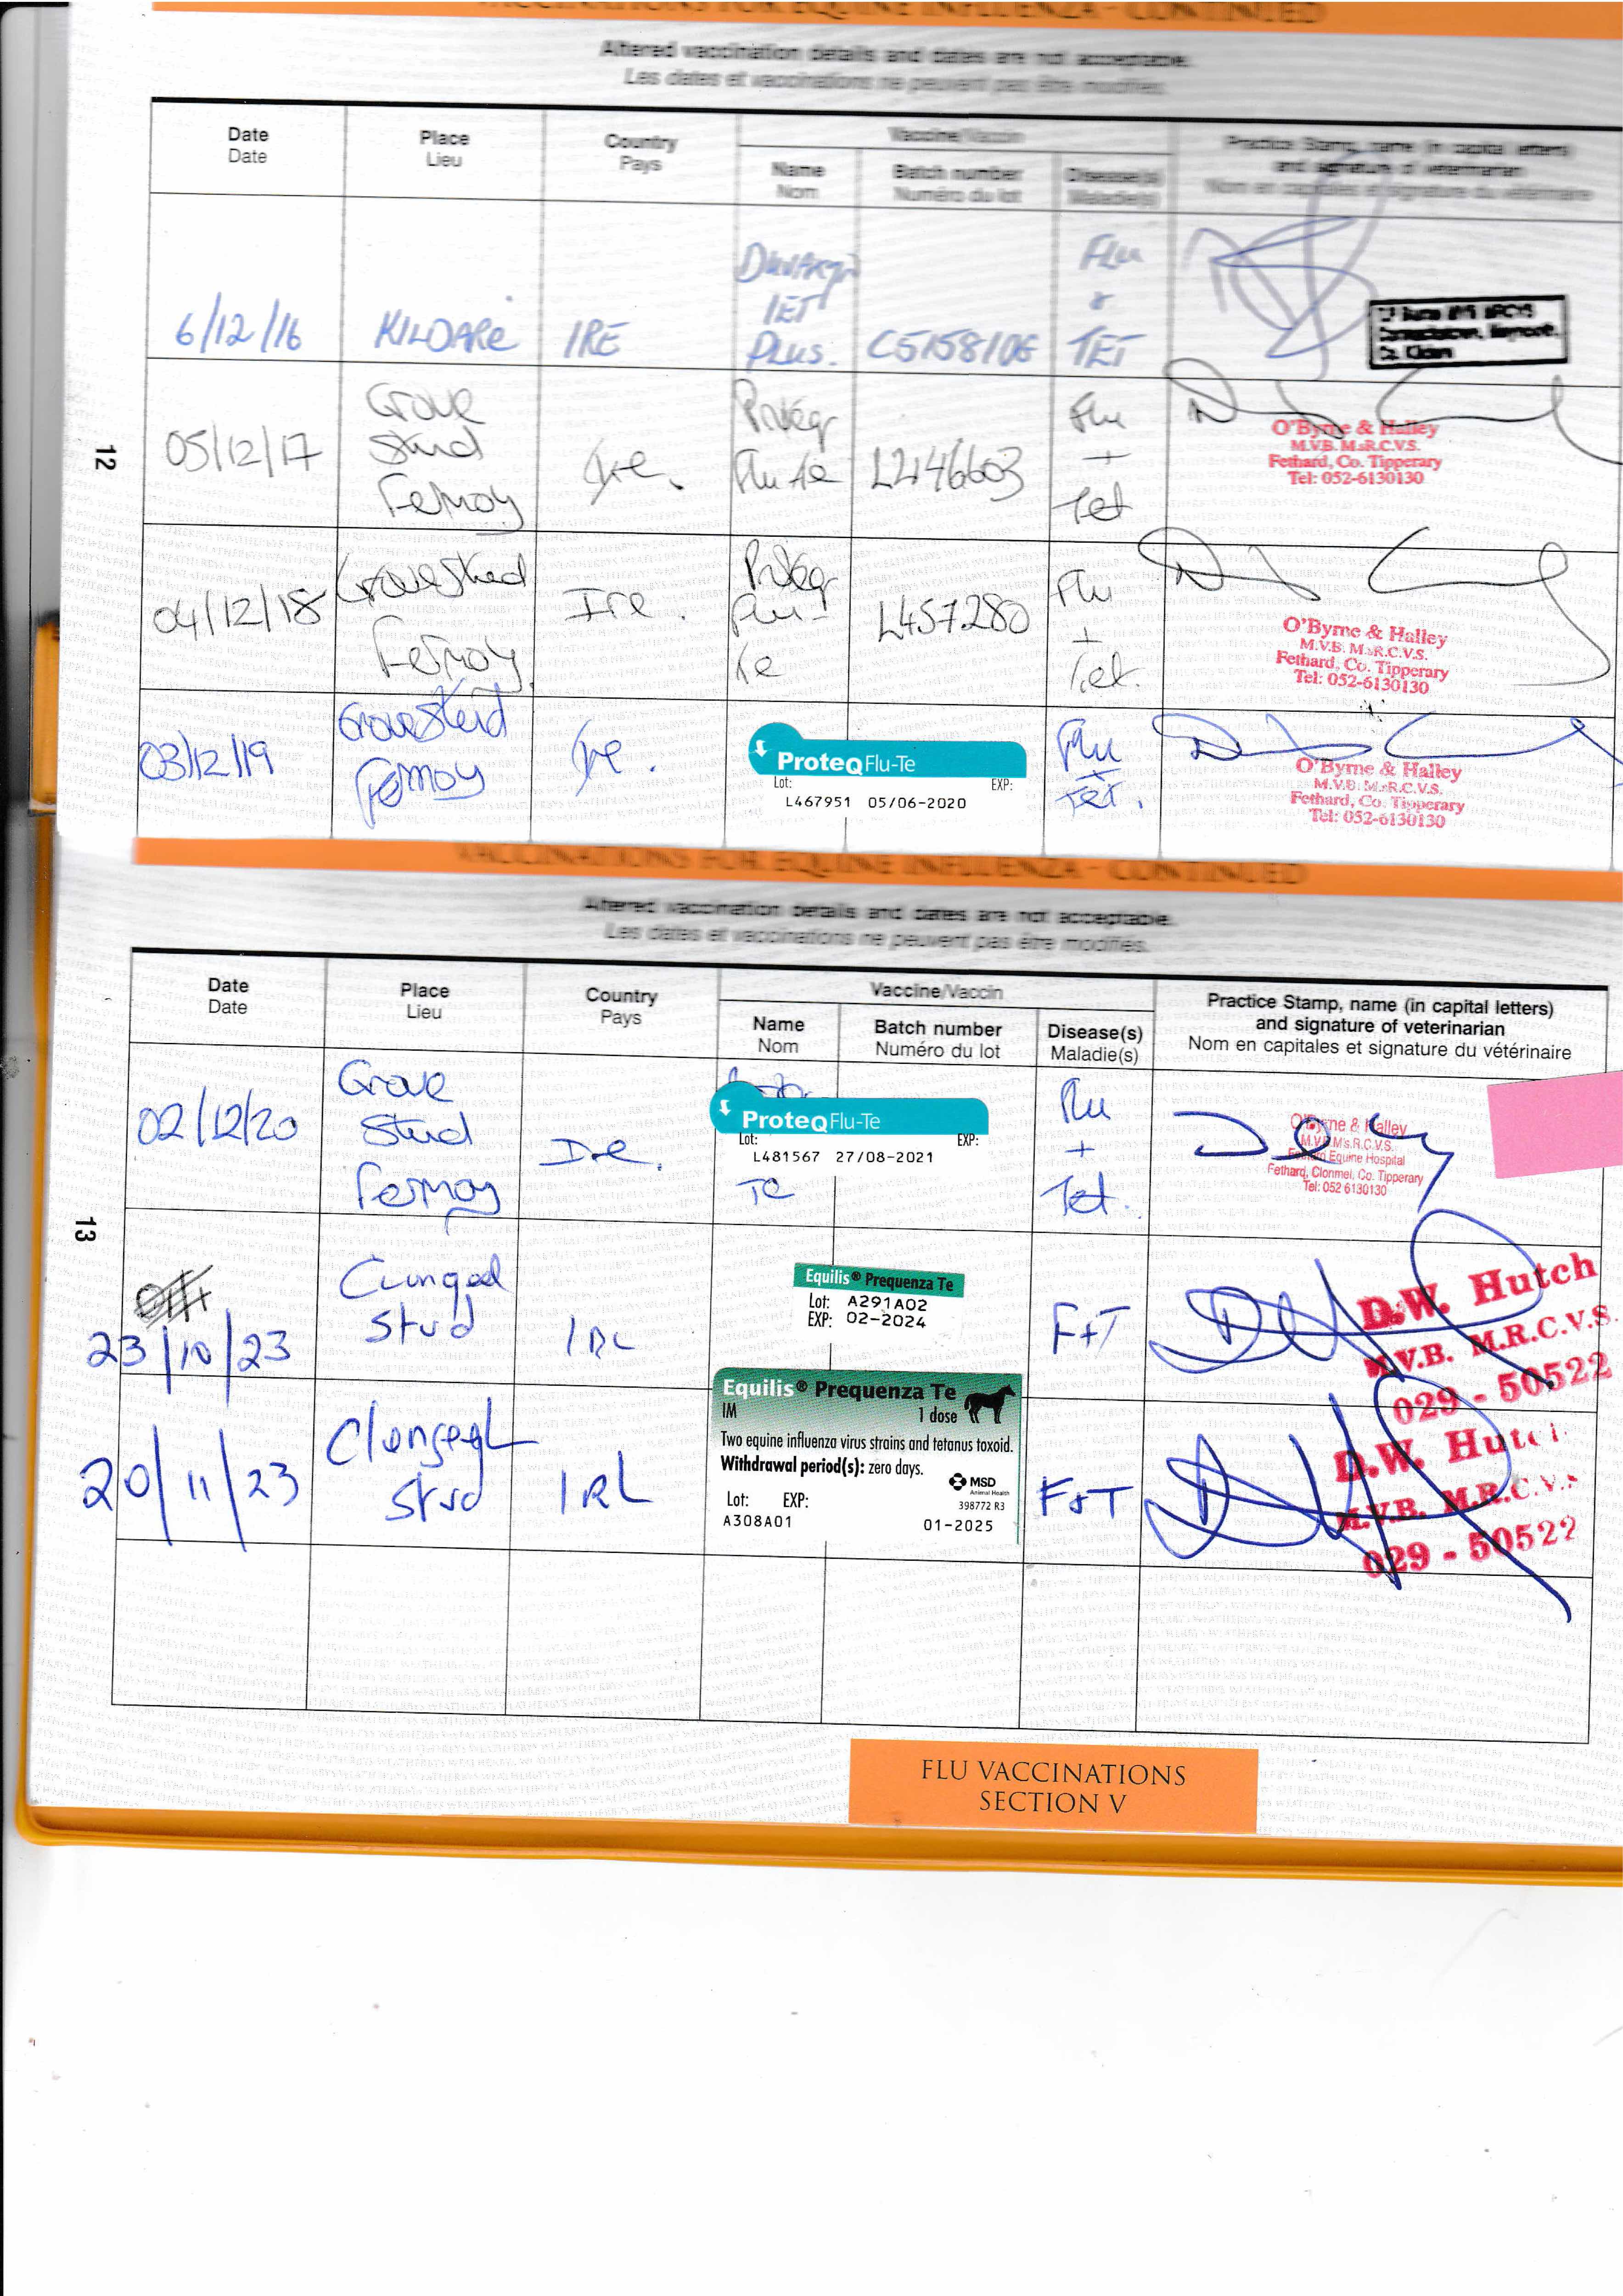 VACCINATIONS FOR EQUINE INFLUENZA - CONTINUED
Altered vaccination details and dates are not acceptable.
Les dates et vaccinations ne peuvent pas être modifies.
Date
Date
Place
Lieu
Country
Pays
Vaccine/Vaccin
Name
Nom
Batch number
Numéro du lot
Disease(s)
Maladie(s)
Practice Stamp, name (in capital letters)
and signature of veterinarian
Nom en capitales et signature du vétérinaire
6/12/16
KILDARE
IRE
IET
Plus.
C515810E
Flu
&
TET
12
05/12/17
Grove
Stud
Fermoy
Ire.
Proteq
Flu te
L2146603
Flu
+
Tet
O'Byrne & Halley
M.V.B. M.sR.C.V.S.
Fethard, Co. Tipperary
Tel: 052-6130130
04/12/18
Grove Stud
Fermoy
Ire.
Proteq
Flu-
te
L457280
Flu
+
Tet.
O'Byrne & Halley
M.V.B. M.sR.C.V.S.
Fethard, Co. Tipperary
Tel: 052-6130130
03/12/19
Grove Stud
Fermoy
Ire.
ProteqFlu-Te
Lot: EXP:
L467951 05/06-2020
Flu
+
Tet.
O'Byrne & Halley
M.V.B. M.sR.C.V.S.
Fethard, Co. Tipperary
Tel: 052-6130130
VACCINATIONS FOR EQUINE INFLUENZA - CONTINUED
Altered vaccination details and dates are not acceptable.
Les dates et vaccinations ne peuvent pas être modifies.
Date
Date
Place
Lieu
Country
Pays
Vaccine/Vaccin
Name
Nom
Batch number
Numéro du lot
Disease(s)
Maladie(s)
Practice Stamp, name (in capital letters)
and signature of veterinarian
Nom en capitales et signature du vétérinaire
02/12/20
Grove
Stud
Fermoy
Ire.
ProteqFlu-Te
Lot: EXP:
L481567 27/08-2021
TE
Flu
+
Tet.
O'Byrne & Halley
M.V.B. M's.R.C.V.S.
Fethard Equine Hospital
Fethard, Clonmel, Co. Tipperary
Tel: 052 6130130
13
23/10/23
Stud
IRL
Equilis® Prequenza Te
Lot: A291A02
EXP: 02-2024
F+T
D.W. Hutch
M.V.B. M.R.C.V.S.
029 - 50522
20/11/23
Stud
IRL
Equilis® Prequenza Te
IM 1 dose
Two equine influenza virus strains and tetanus toxoid.
Withdrawal period(s): zero days.
MSD
Animal Health
Lot: EXP: 398772 R3
A308A01 01-2025
F&T
D.W. Hutch
M.V.B. M.R.C.V.S
029 - 50522
FLU VACCINATIONS
SECTION V